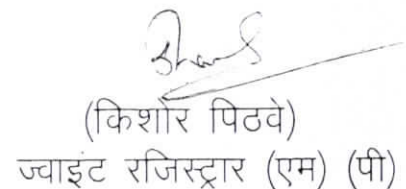 (किशोर पिठवे)
ज्वाइंट रजिस्ट्रार (एम) (पी)